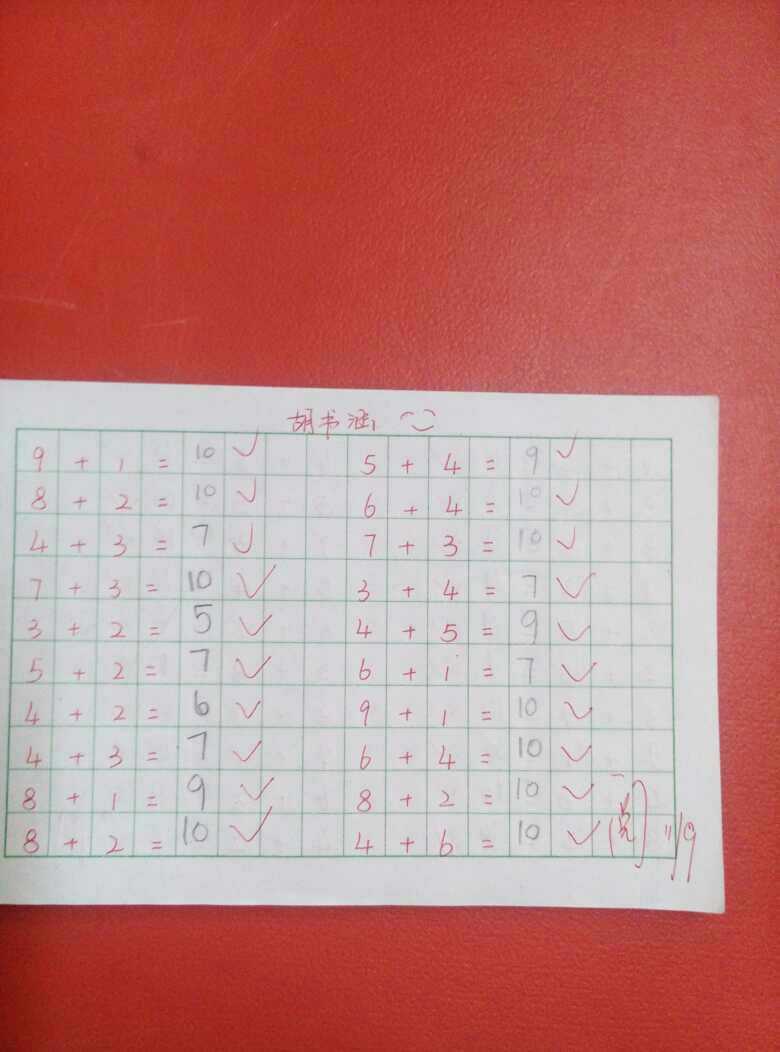 胡书涵
9 + 1 = 10 5 + 4 = 9
8 + 2 = 10 6 + 4 = 10
4 + 3 = 7 7 + 3 = 10
7 + 3 = 10 3 + 4 = 7
3 + 2 = 5 4 + 5 = 9
5 + 2 = 7 6 + 1 = 7
4 + 2 = 6 9 + 1 = 10
4 + 3 = 7 6 + 4 = 10
8 + 1 = 9 8 + 2 = 10
8 + 2 = 10 4 + 6 = 10
11/9